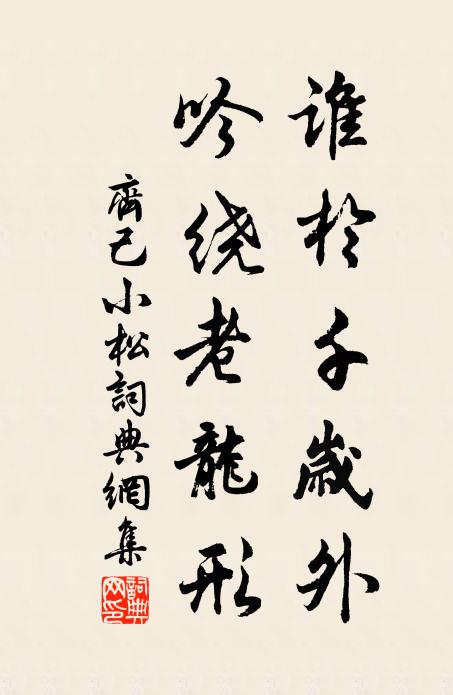 誰於千歲外
吟绕老龍形
齊己小松詞典網集
詞典网印